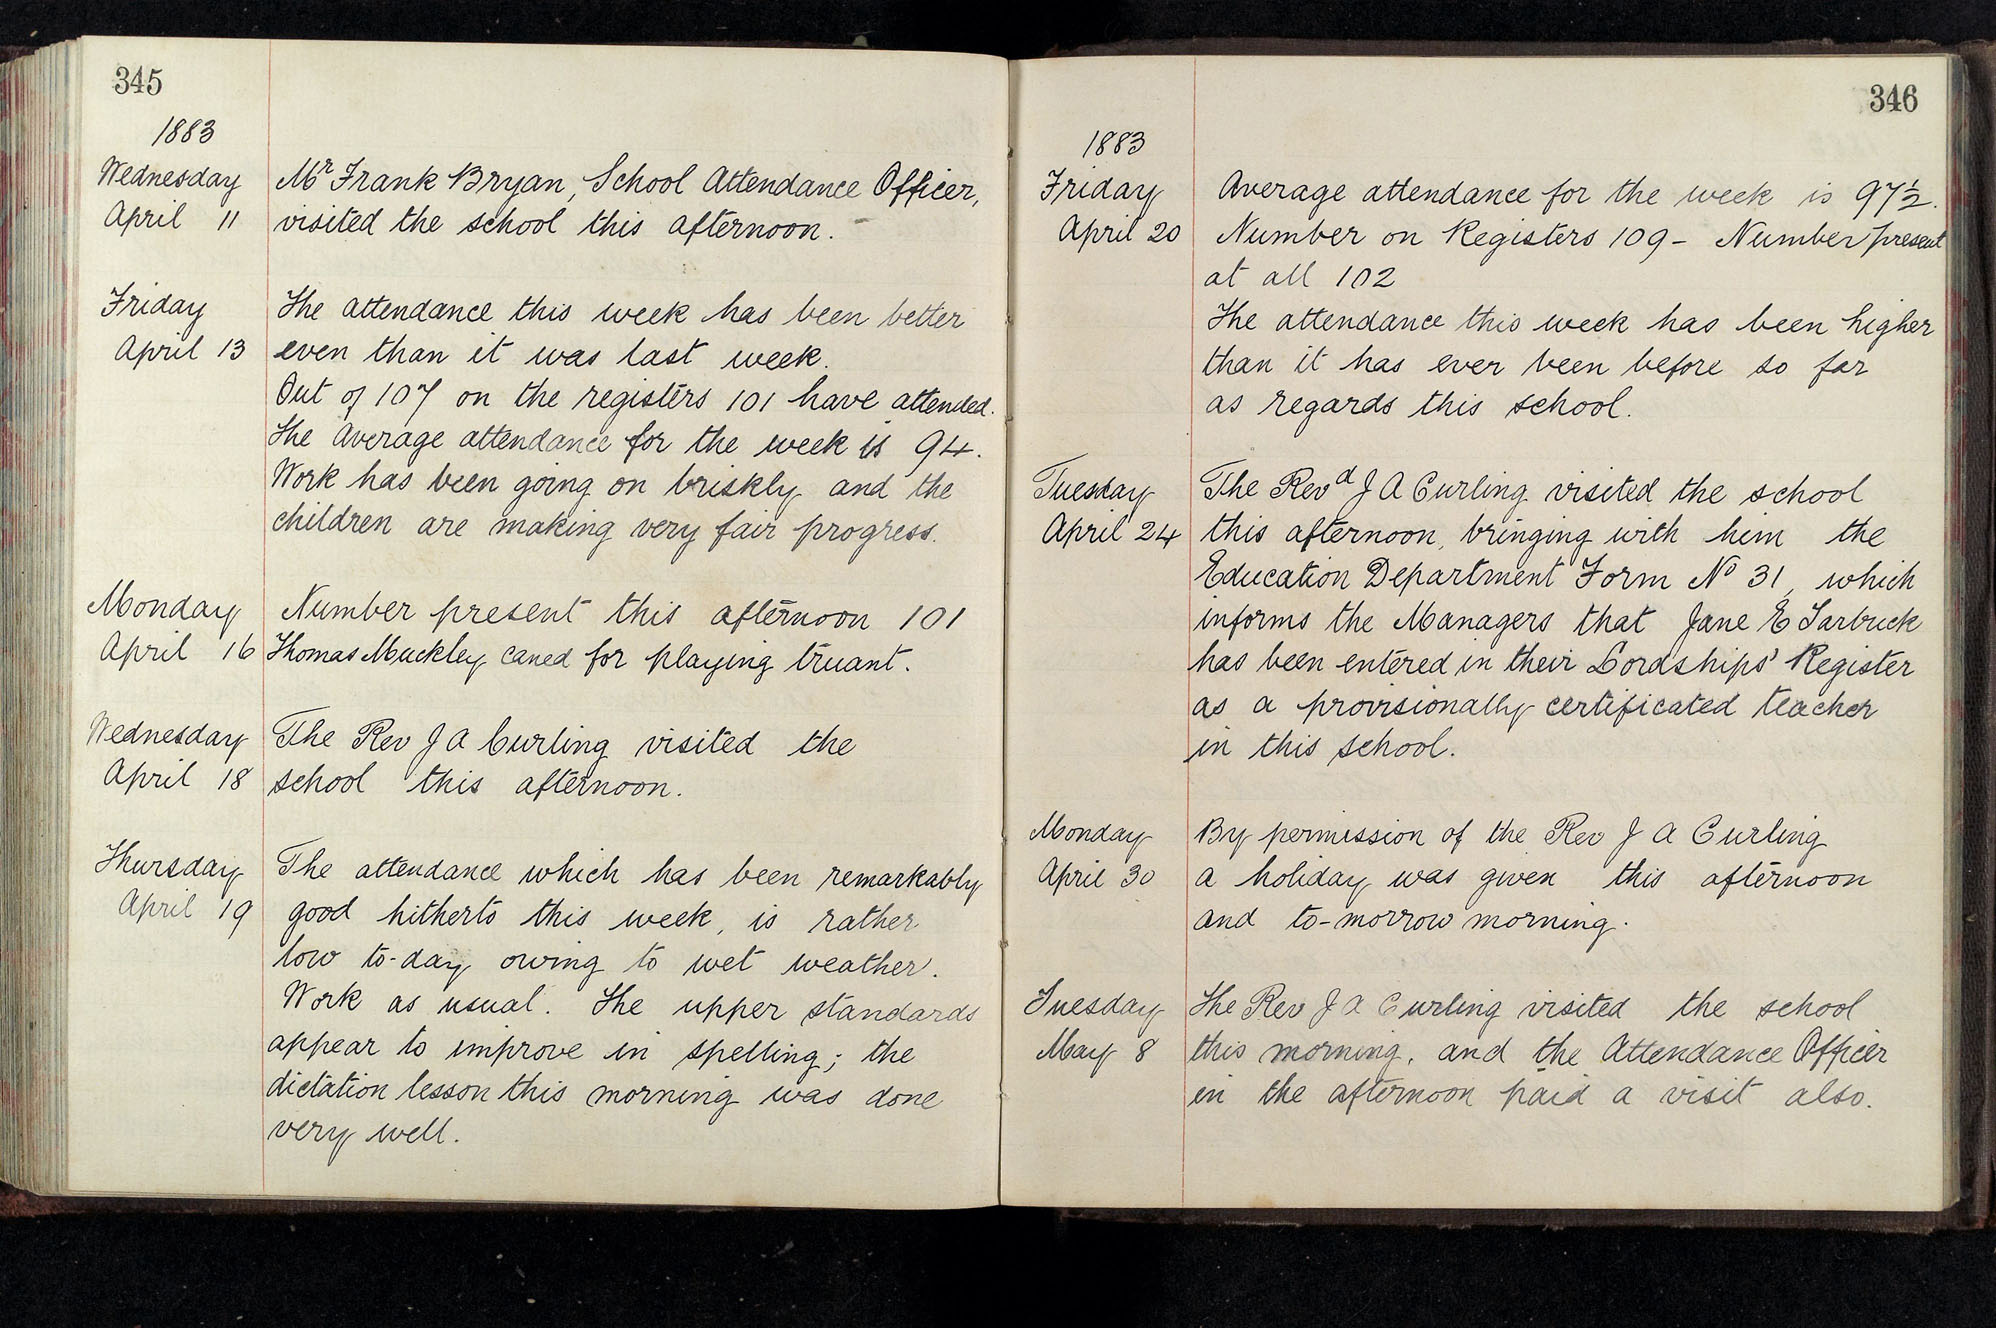 345
1883
Wednesday
April 11
Mr Frank Bryan, School Attendance Officer,
visited the school this afternoon.
Friday
April 13
The attendance this week has been better
even than it was last week.
Out of 107 on the registers 101 have attended.
The Average attendance for the week is 94.
Work has been going on briskly and the
children are making very fair progress.
Monday
April 16
Number present this afternoon 101
Thomas Muckley caned for playing truant.
Wednesday
April 18
The Rev J A Curling visited the
school this afternoon.
Thursday
April 19
The attendance which has been remarkably
good hitherto this week, is rather
low to-day owing to wet weather.
Work as usual. The upper standards
appear to improve in spelling; the
dictation lesson this morning was done
very well.
346
1883
Friday
April 20
Average attendance for the week is 97½.
Number on Registers 109 - Number present
at all 102
The attendance this week has been higher
than it has ever been before so far
as regards this school.
Tuesday
April 24
The Revd J A Curling visited the school
this afternoon, bringing with him the
Education Department Form No 31, which
informs the Managers that Jane E Tarbuck
has been entered in their Lordships' Register
as a provisionally certificated teacher
in this school.
Monday
April 30
By permission of the Rev J A Curling
a holiday was given this afternoon
and to-morrow morning.
Tuesday
May 8
The Rev J A Curling visited the school
this morning, and the Attendance Officer
in the afternoon paid a visit also.